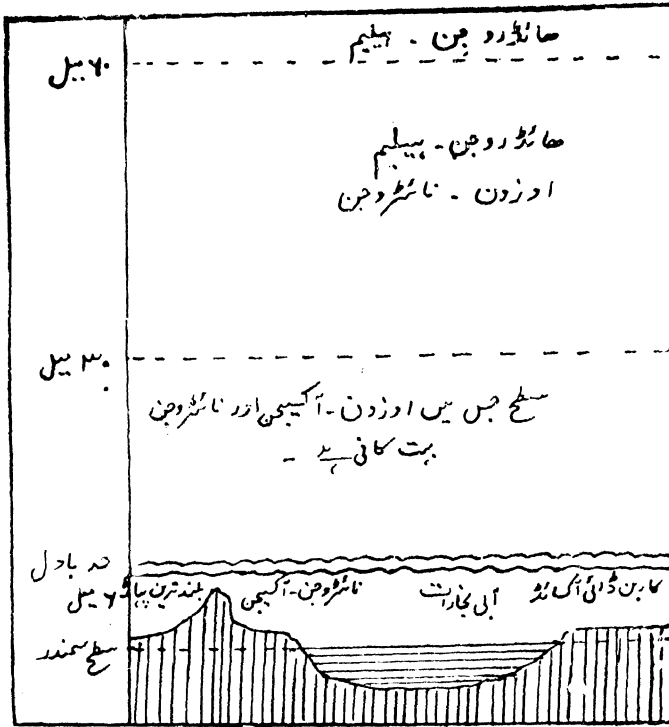 ھائڈروجن - ہیلیم
۶۰ میل
ھائڈروجن - ہیلیم
اوزون - نائٹروجن
۳۰ میل
سطح جس میں اوزون - آکسیجن اور نائٹروجن
بہت کافی ہے -
حد بادل
۶ میل بلند ترین پہاڑ نائٹروجن - آکسیجن آبی بخارات کاربن ڈائی آکسائڈ
سطح سمندر